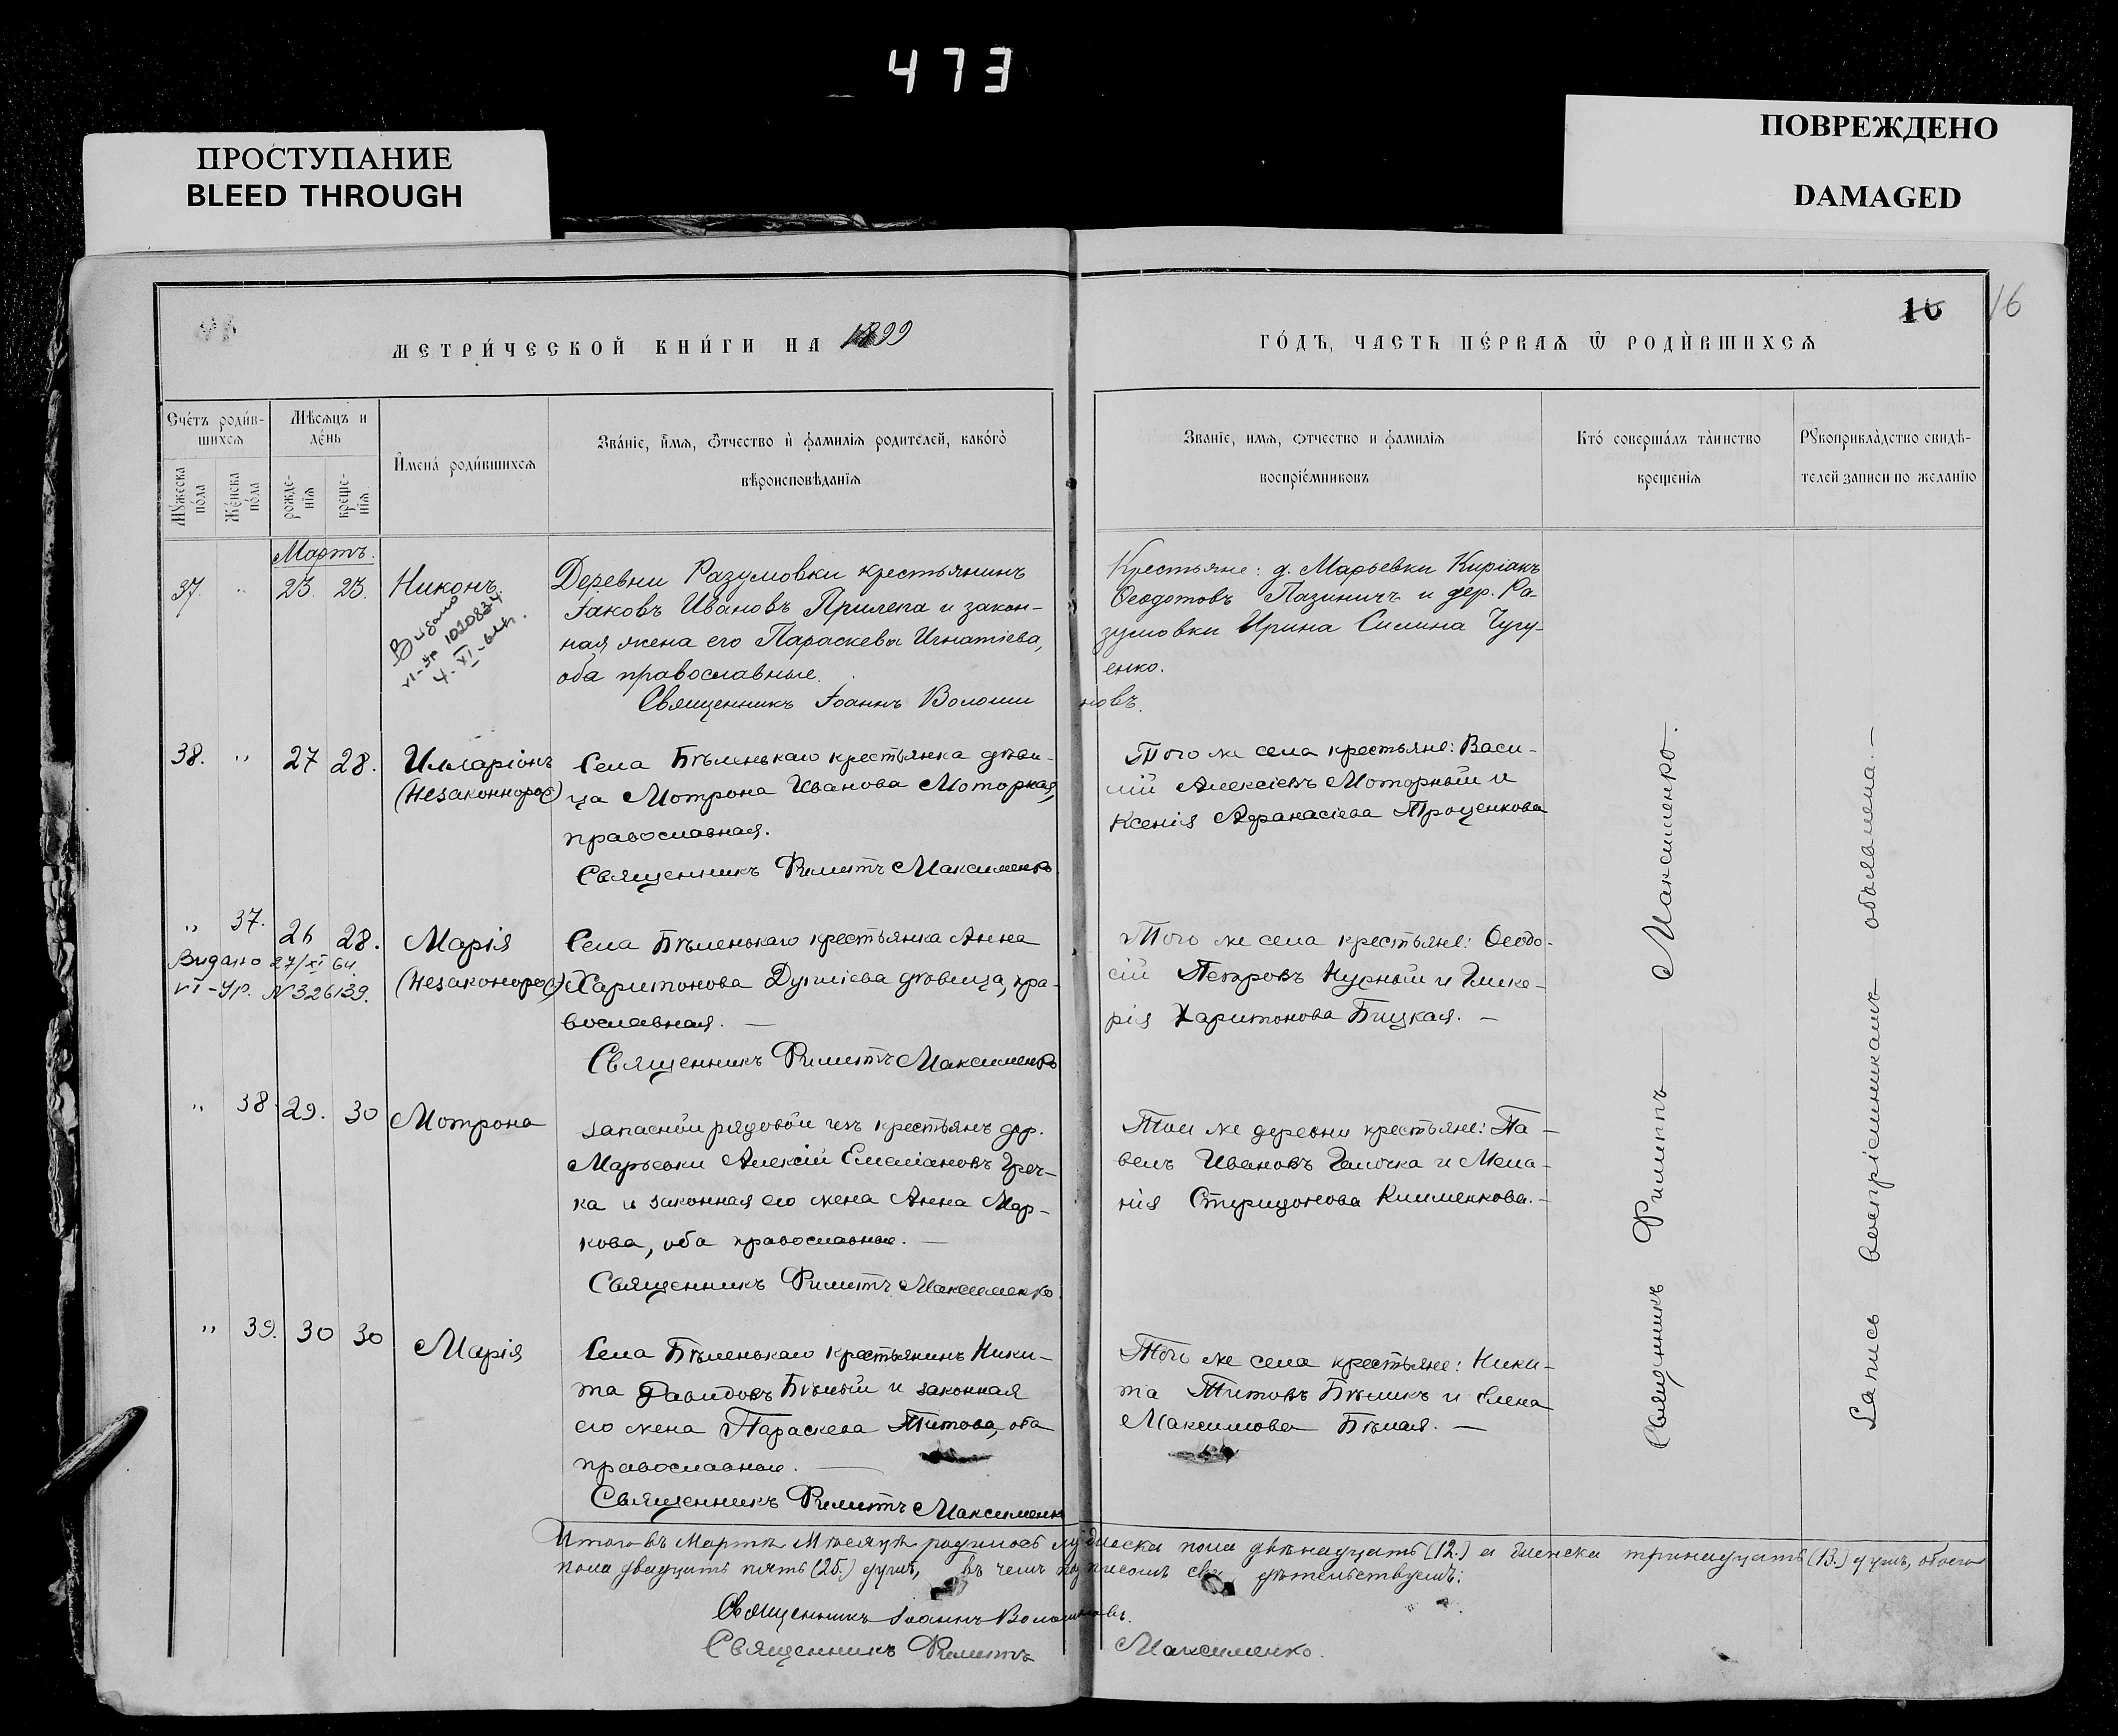 473
ПРОСТУПАНИЕ
BLEED THROUGH
ПОВРЕЖДЕНО
DAMAGED
16
16
МЕТРИ́ЧЕСКОЙ КНИ́ГИ НА 1899
ГО́ДЪ, ЧАСТЬ ПЕ́РВАЯ Ѡ РОДИ́ВШИХСЯ
Сче́тъ роди́в-
шихся
Мѣсяцъ и
де́нь
Имена́ роди́вшихся
Зва́нїе, и́мя, ѻтчество и фамилїя родителей, како́гѡ
вѣроисповѣданїя
Мꙋ́жеска
по́ла
Же́нска
по́ла
рожде-
нїя
креще-
нїя
Званїе, имя, ѻтчество и фамилїя
воспрїе́мниковъ
Кто́ совершáлъ тáинство
крещенїя
Рꙋкоприклáдство свидѣ-
телей записи по желанїю
Мартъ.
37. " 23. 23. Никонъ
Видано
VI-Ур 1020834
4-XI-64г.
Деревни Разумовки крестьянинъ
Іаковъ Ивановъ Прилепа и закон-
ная жена его Параскева Игнатіева,
оба православные.
Священникъ Іоаннъ Волошиновъ.
Крестьяне: д. Марьевки Киріакъ
Ѳеодотовъ Пазиничъ и дер. Ра-
зумовки Ирина Силина Чугу-
енко.
38. " 27 28. Илларіонъ
(Незаконнорос)
Села Бѣленькаго крестьянка дѣви-
ца Мотрона Иванова Моторная,
православная.
Священникъ Филиппъ Максименко
Того же села крестьяне: Васи-
лій Алексіевъ Моторный и
Ксенія Аѳанасіева Проценкова
" 37. 26 28. Марія
(Незаконорос)
Видано 27/XI 64
VI-Ур. N326139.
Села Бѣленькаго крестьянка Анна
Харитонова Дупліева дѣвица, пра-
вославная. —
Священникъ Филиппъ Максименко
Того же села крестьяне: Ѳеодо-
сій Петровъ Курный и Глике-
рія Харитонова Бицкая. —
" 38. 29. 30 Мотрона
запасный рядовой изъ крестьянъ дер.
Марьевки Алексій Емеліановъ Греч-
ка и законная его жена Анна Мар-
кова, оба православные. —
Священникъ Филиппъ Максименко.
Той же деревни крестьяне: Па-
велъ Ивановъ Галочка и Мела-
нія Спиридонова Клименкова. —
" 39. 30 30 Марія
Села Бѣленькаго крестьянинъ Ники-
та Давидовъ Бѣлый и законная
его жена Параскева Титова, оба
православные. —
Священникъ Филиппъ Максименко
Того же села крестьяне: Ники-
та Титовъ Бѣликъ и Елена
Максимова Бѣлая. —
Священникъ Филиппъ — Максименко.
Запись воспріемникамъ объявлена. —
Итого въ Мартѣ Мѣсяцѣ родилось мужеска пола двѣнадцать (12.) а женска тринадцать (13.) душъ, обоего
пола двадцать пять (25.) душъ, въ чемъ подписомъ свидѣтельствуемъ:
Священникъ Іоаннъ Волошиновъ.
Священникъ Филиппъ Максименко.